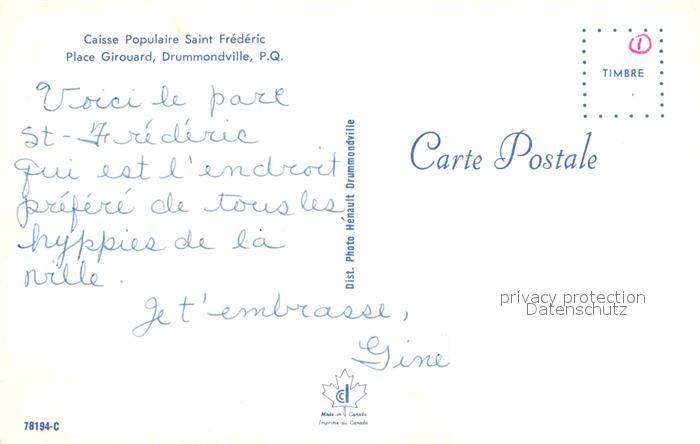 Caisse Populaire Saint Frédéric
Place Girouard, Drummondville, P.Q.
Voici le parc
St-Frédéric
qui est l'endroit
préféré de tous les
hyppies de la
ville.
Je t'embrasse,
Gine
78194-C
Dist. Photo Henault Drummondville
1
TIMBRE
Carte Postale
privacy protection
Datenschutz
Made in Canada
Imprimé au Canada